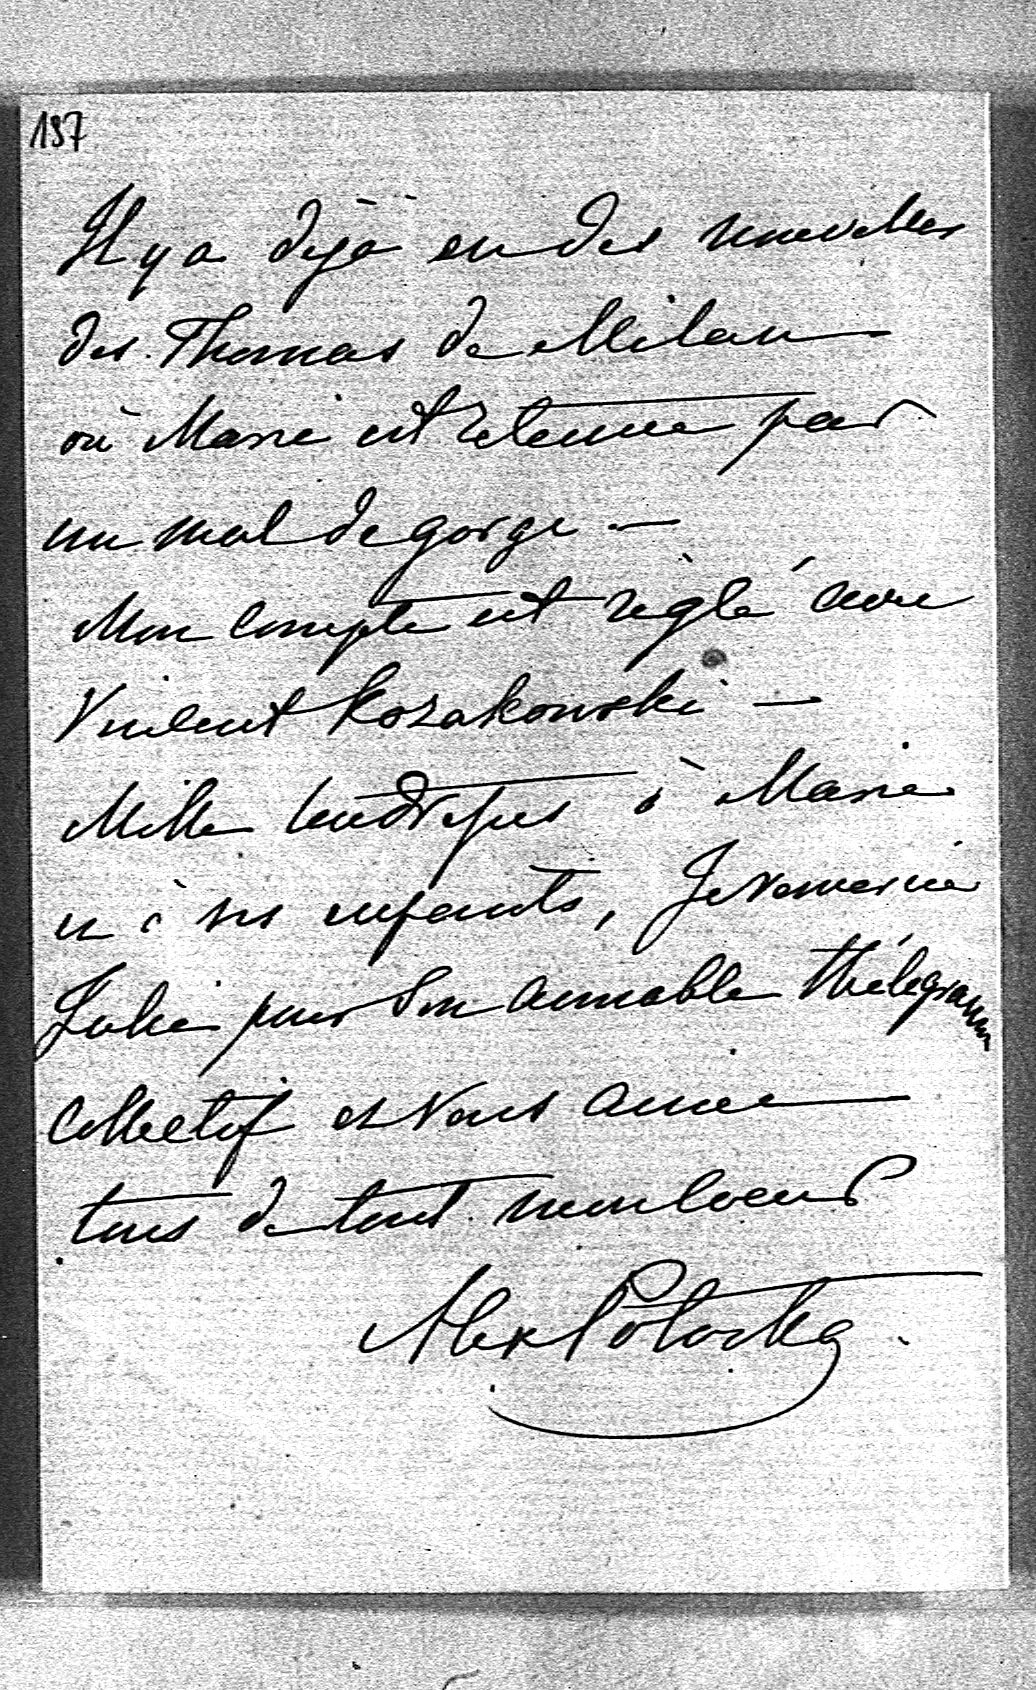 187
Il y a déjà eu des nouvelles
des Thomas de Milan
où Marie est retenue par
un mal de gorge —
Mon compte est règlé avec
Vincent Kozakowski —
Mille tendresses à Marie
et à ses enfants, Je remercie
Julie pour Son aimable thélegramm
collectif et Vous aime
tous de tout mon coeur
Alex Potocka